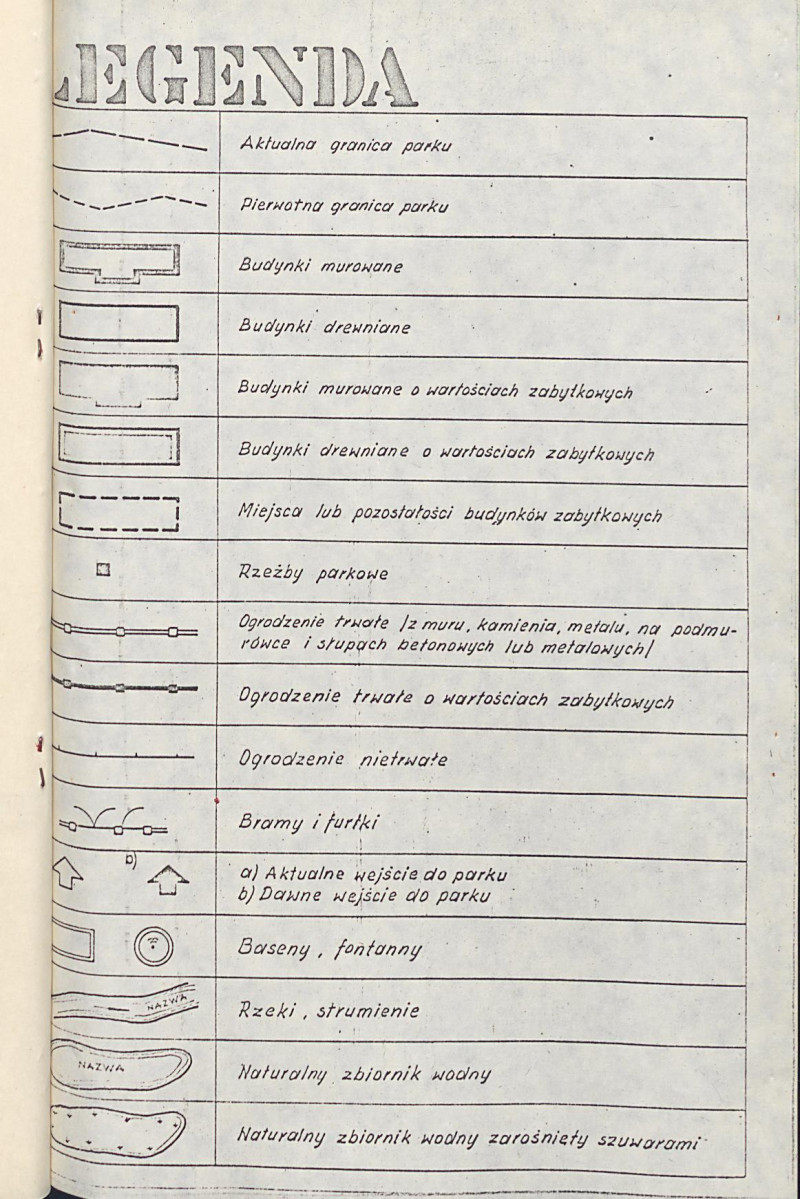 LEGENDA
Aktualna granica parku
Pierwotna granica parku
Budynki murowane
Budynki drewniane
Budynki murowane o wartościach zabytkowych
Budynki drewniane o wartościach zabytkowych
Miejsca lub pozostałości budynków zabytkowych
Rzeźby parkowe
Ogrodzenie trwałe /z muru, kamienia, metalu, na podmu-
rówce i słupach betonowych lub metalowych/
Ogrodzenie trwałe o wartościach zabytkowych
Ogrodzenie nietrwałe
Bramy i furtki
b)
a) Aktualne wejście do parku
b) Dawne wejście do parku
Baseny, fontanny
NAZWA
Rzeki, strumienie
NAZWA
Naturalny zbiornik wodny
Naturalny zbiornik wodny zarośnięty szuwarami